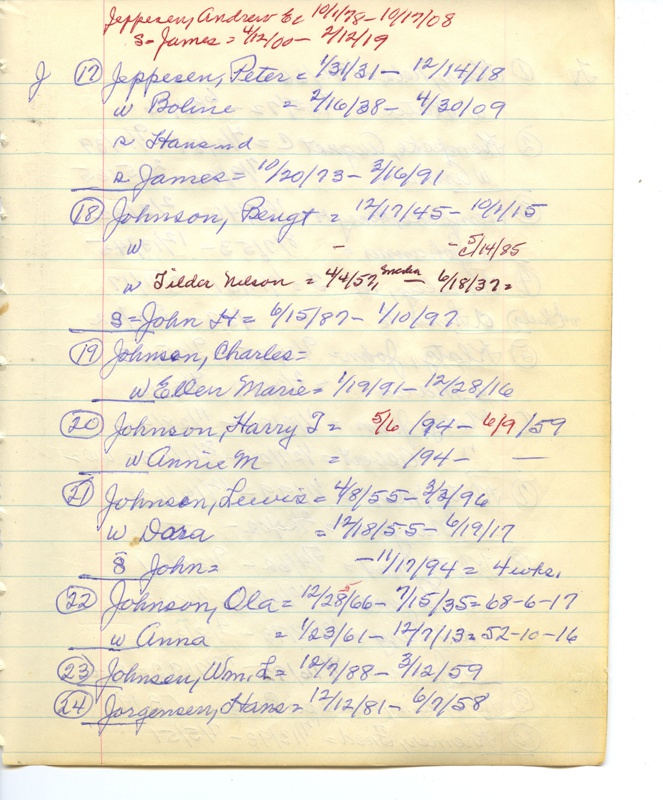 Jeppesen, Andrew Ec 10/1/78 - 10/17/08
s- James = 4/12/00 - 2/12/19
J (17) Jeppesen, Peter = 1/31/31 - 12/14/18
w Boline = 2/16/38 - 4/30/09
s Hans nd
s James = 10/20/73 - 3/16/91
(18) Johnson, Bengt = 12/17/45 - 10/1/15
w - - 5/14/85
w Tilda Nelson = 4/4/57, Sweden - 6/18/37 =
s = John H = 6/15/87 - 1/10/97
(19) Johnson, Charles =
w Ellen Marie = 1/19/91 - 12/28/16
(20) Johnson, Harry T = 5/6 /94 - 6/9/59
w Annie M = /94 - —
(21) Johnson, Lewis = 4/8/55 - 3/3/96
w Dora = 12/18/55 - 6/19/17
s John = - 11/17/94 = 4 wks.
(22) Johnson, Ola = 12/28/66 - 7/15/35 = 68-6-17
w Anna = 1/23/61 - 12/7/13 = 52-10-16
(23) Johnson, Wm. L = 12/7/88 - 3/12/59
(24) Jorgensen, Hans = 12/12/81 - 6/7/58